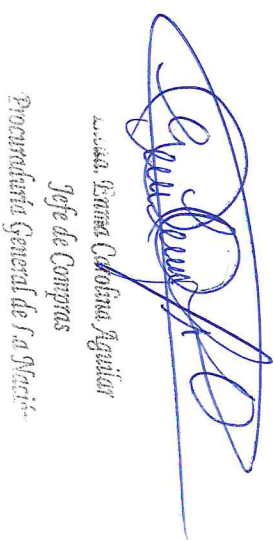 Emma Carolina Aguilar
Jefe de Compras
Procuraduría General de la Nación